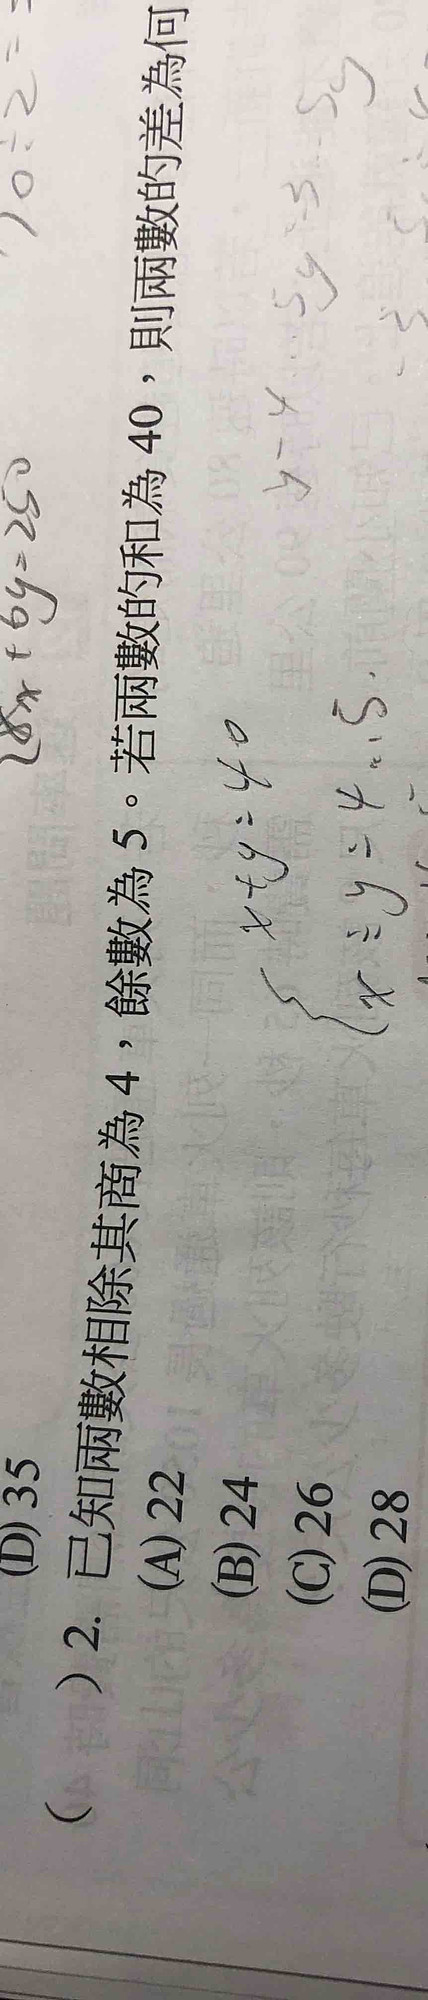 10÷2=
8x+6y=250
(D) 35
(　) 2. 已知兩數相除其商為 4，餘數為 5。若兩數的和為 40，則兩數的差為何
(A) 22
(B) 24
(C) 26
(D) 28
x+y=40
x÷y=4…5